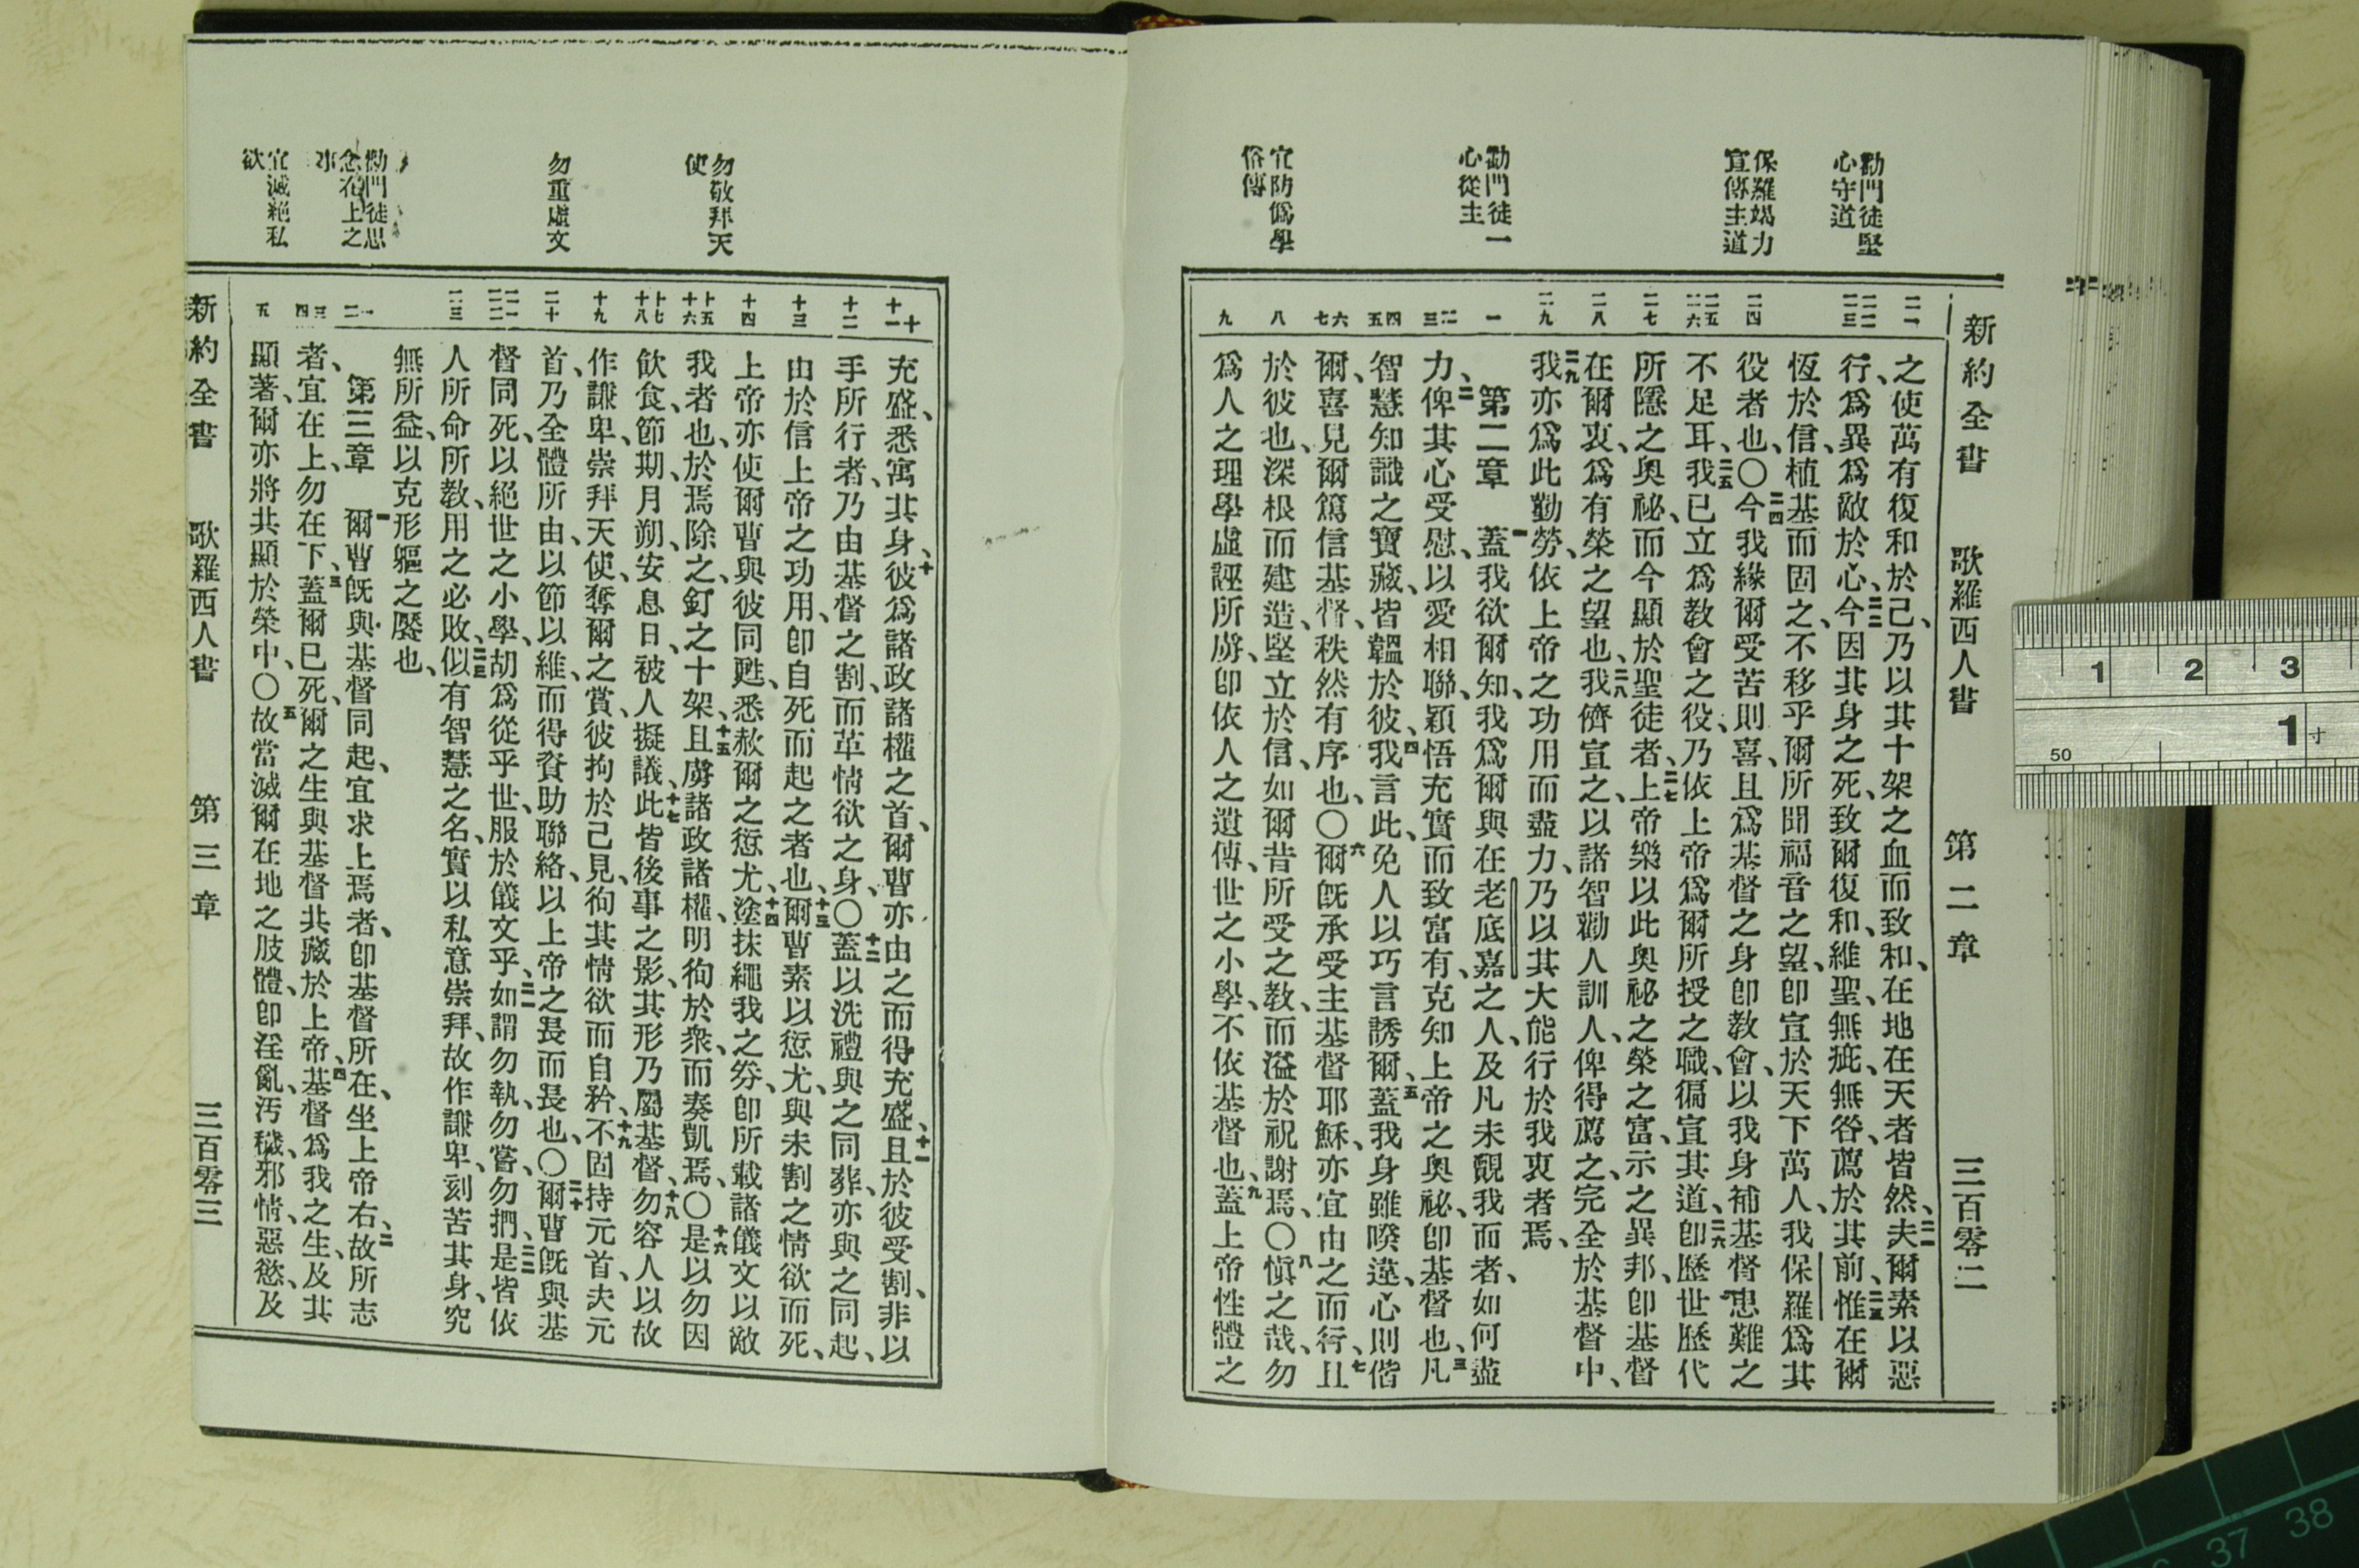 新約全書 歌羅西人書 第二章 三百零二
勸門徒堅
心守道
保羅竭力
宣傳主道
勸門徒一
心從主
宜防僞學
俗傳
二一
二二
二三
二四
二五
二六
二七
二八
二九
一
二
三
四
五
六
七
八
九
之使萬有復和於己、乃以其十架之血而致和、在地在天者皆然、二一夫爾素以惡
行、爲異爲敵於心、二二今因其身之死、致爾復和、維聖、無疵、無咎、薦於其前、二三惟在爾
恆於信、植基而固之、不移乎爾所聞福音之望、卽宣於天下萬人、我保羅爲其
役者也、〇二四今我緣爾受苦則喜、且爲基督之身卽教會、以我身補基督患難之
不足耳、二五我已立爲教會之役、乃依上帝爲爾所授之職、徧宣其道、二六卽歷世歷代
所隱之奧祕、而今顯於聖徒者、二七上帝樂以此奧祕之榮之富、示之異邦、卽基督
在爾衷、爲有榮之望也、二八我儕宣之、以諸智勸人訓人、俾得薦之、完全於基督中、
二九我亦爲此勤勞、依上帝之功用而盡力、乃以其大能行於我衷者焉、
第二章 一蓋我欲爾知、我爲爾與在老底嘉之人、及凡未覿我而者、如何盡
力、二俾其心受慰、以愛相聯、穎悟充實而致富有、克知上帝之奧祕、卽基督也、三凡
智慧知識之寶藏、皆韞於彼、四我言此、免人以巧言誘爾、五蓋我身雖暌違、心則偕
爾、喜見爾篤信基督、秩然有序也、〇六爾旣承受主基督耶穌、亦宜由之而行、七且
於彼也、深根而建造、堅立於信、如爾昔所受之教、而溢於祝謝焉、〇八愼之哉、勿
爲人之理學虛誣所虜、卽依人之遺傳、世之小學、不依基督也、九蓋上帝性體之
勿敬拜天
使
勿重虛文
勸門徒思
念在上之
宜滅絕私
欲
十
十一
十二
十三
十四
十五
十六
十七
十八
十九
二十
二一
二二
二三
一
二
三
四
五
充盛、悉寓其身、十彼爲諸政諸權之首、爾曹亦由之而得充盛、十一且於彼受割、非以
手所行者、乃由基督之割、而革情欲之身、〇十二蓋以洗禮與之同葬、亦與之同起、
由於信上帝之功用、卽自死而起之者也、十三爾曹素以愆尤、與未割之情欲而死、
上帝亦使爾曹與彼同甦、悉赦爾之愆尤、十四塗抹繩我之券、卽所載諸儀文以敵
我者也、於焉除之、釘之十架、十五且虜諸政諸權、明徇於衆、而奏凱焉、〇十六是以勿因
飲食、節期、月朔、安息日、被人擬議、十七此皆後事之影、其形乃屬基督、十八勿容人以故
作謙卑、崇拜天使、奪爾之賞、彼拘於己見、徇其情欲而自矜、十九不固持元首、夫元
首、乃全體所由、以節以維、而得資助聯絡、以上帝之長而長也、〇二十爾曹旣與基
督同死、以絕世之小學、胡爲從乎世、服於儀文乎、二一如謂勿執、勿嘗、勿捫、二二是皆依
人所命所教、用之必敗、二三似有智慧之名、實以私意崇拜、故作謙卑、刻苦其身、究
無所益、以克形軀之饜也、
第三章 一爾曹旣與基督同起、宜求上焉者、卽基督所在、坐上帝右、二故所志
者、宜在上、勿在下、三蓋爾已死、爾之生與基督共藏於上帝、四基督爲我之生、及其
顯著、爾亦將共顯於榮中、〇五故當滅爾在地之肢體、卽淫亂、汚穢、邪情、惡慾、及
新約全書 歌羅西人書 第三章 三百零三
1 2 3
1寸
50
37 38